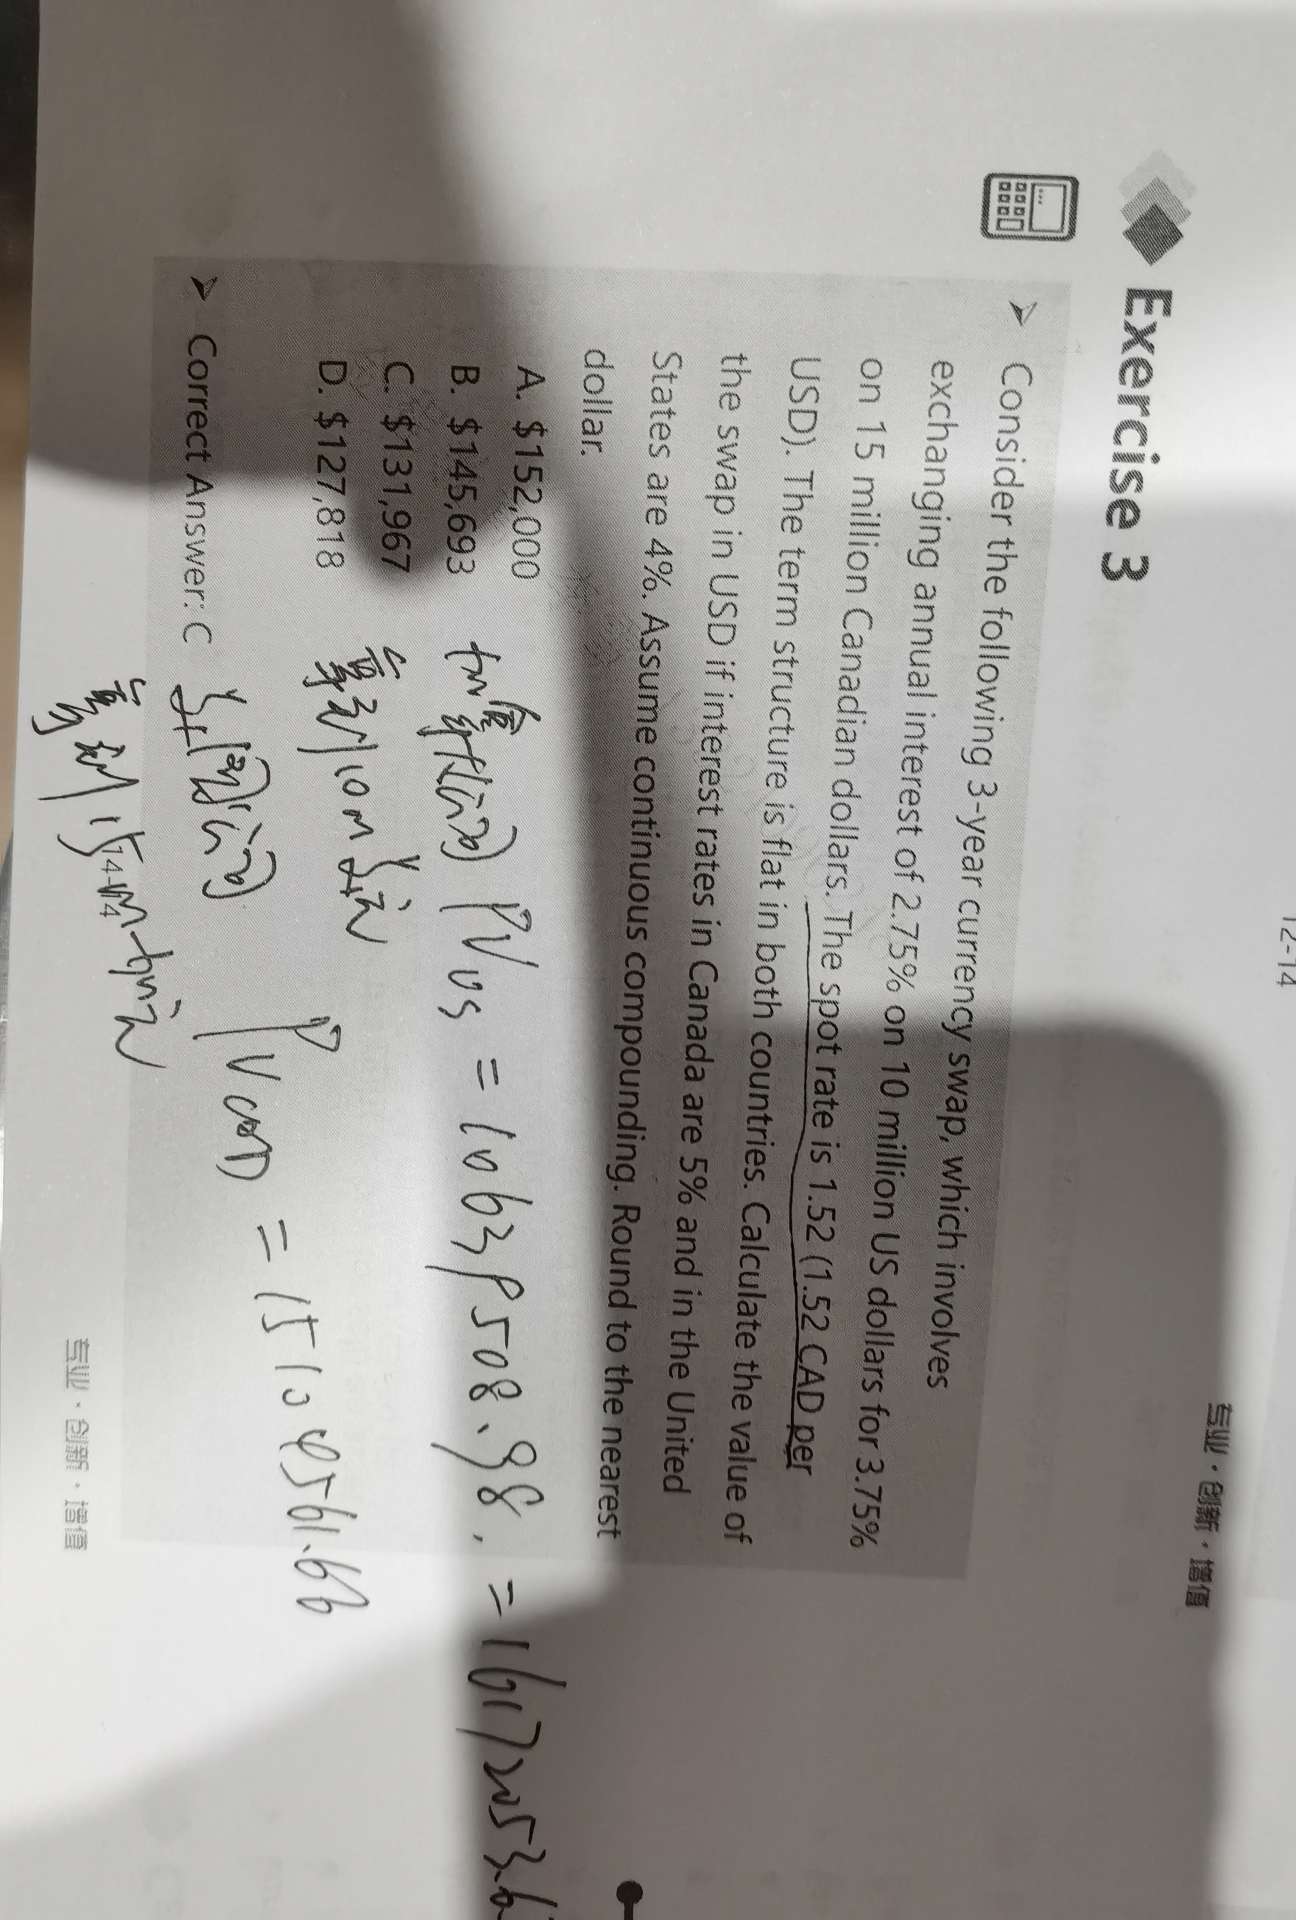 12-14
专业·创新·增值
Exercise 3
➢ Consider the following 3-year currency swap, which involves
exchanging annual interest of 2.75% on 10 million US dollars for 3.75%
on 15 million Canadian dollars. The spot rate is 1.52 (1.52 CAD per
USD). The term structure is flat in both countries. Calculate the value of
the swap in USD if interest rates in Canada are 5% and in the United
States are 4%. Assume continuous compounding. Round to the nearest
dollar.
A. $152,000
B. $145,693
C. $131,967
D. $127,818
➢ Correct Answer: C
PV US =
10m
PV CAD =
14-14
专业·创新·增值